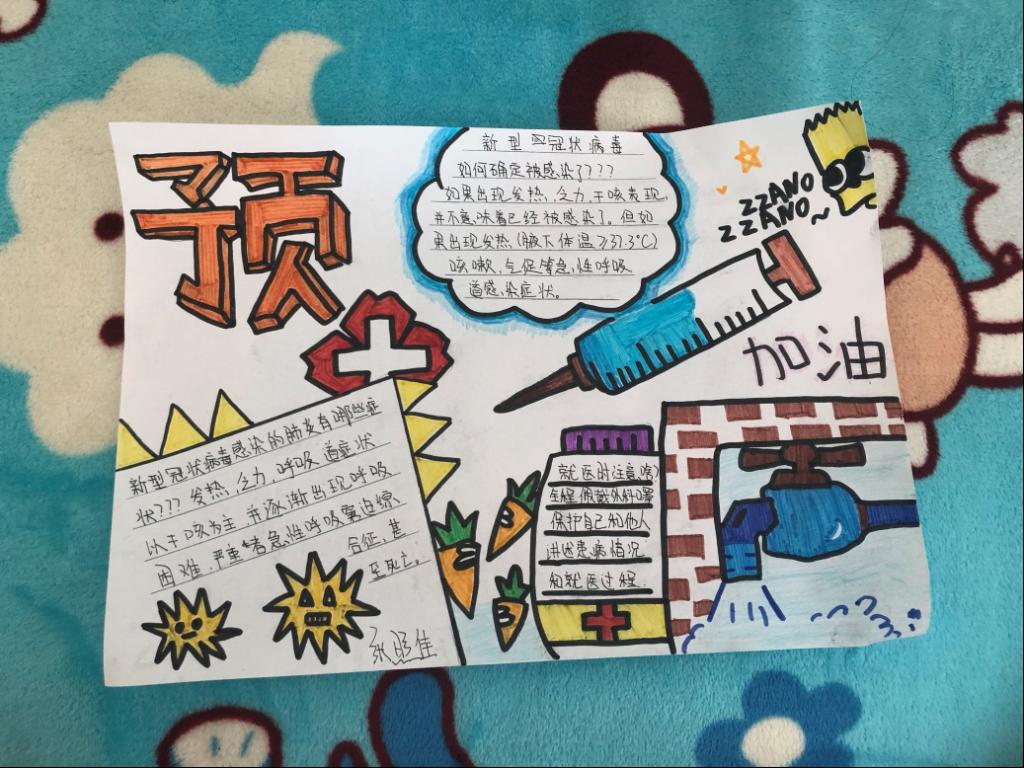 预
新型冠状病毒
如何确定被感染了????
如果出现发热,乏力,干咳表现,
并不意味着已经被感染了。但如
果出现发热(腋下体温≥37.3℃)
咳嗽,气促等急性呼吸
道感染症状。
ZZANO
ZZANO~
加油
新型冠状病毒感染的肺炎有哪些症
状??? 发热,乏力,呼吸道症状
以干咳为主,并逐渐出现呼吸
困难,严重者急性呼吸窘迫综
合征,甚
至死亡。
就医时注意啥?
全程佩戴外科口罩
保护自己和他人
讲述患病情况
和就医过程.